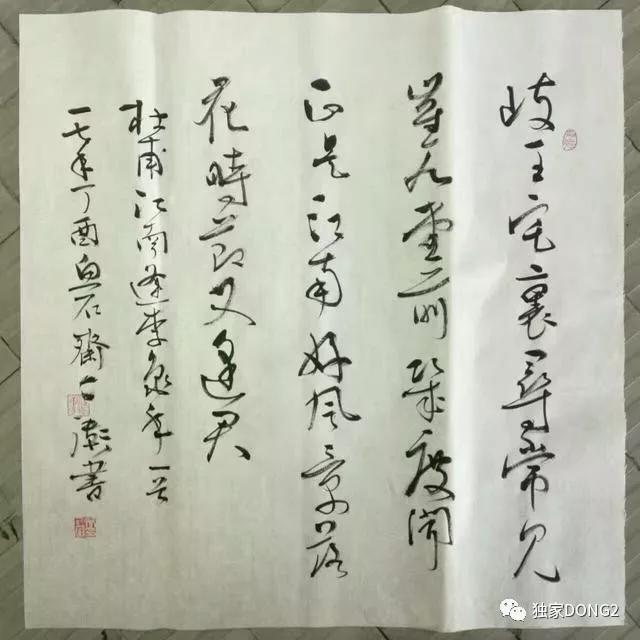 歧王宅裏尋常見
崔九堂前幾度聞
正是江南好風景落
花時節又逢君
杜甫江南逢李龜年一首
一七年丁酉白石齋書
独家DONG2